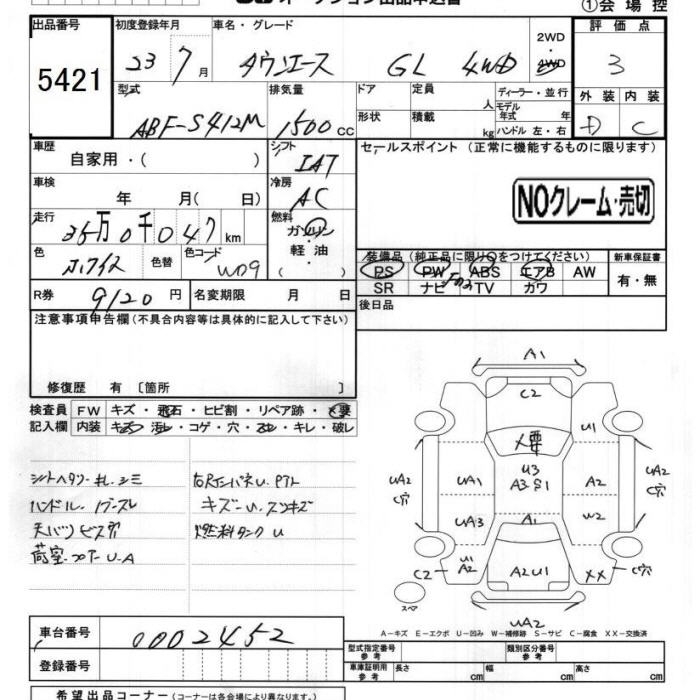 ①会場控
出品番号 初度登録年月 車名・グレード 2WD 4WD 評価点
5421 23 7月 タウンエース GL 4WD 3
型式 排気量 ドア 定員 人 ディーラー・並行 外装 内装
ABF-S412M 1500 CC 形状 積載 kg モデル年式 年 ハンドル 左・右 D C
車歴 自家用・( ) シフト IA7 セールスポイント (正常に機能するものに限ります)
車検 年 月( 日) 冷房 AC NOクレーム・売切
走行 km 燃料 ガソリン 軽油 ( )
色 色替 カラーコード W09 装備品(純正品に限り○をつけてください) 新車保証書
PS PW ABS エアB AW 有・無
SR ナビ TV カワ
R券 9120円 名変期限 月 日 後日品
注意事項申告欄(不具合内容等は具体的に記入して下さい)
修復歴 有 〔箇所 〕
検査員記入欄 FW キズ・飛石・ヒビ割・リペア跡・×要
内装 コゲ・穴・キレ・破レ
シートヘタリ・
ハンドル・
天バリビス穴
キズ
燃料タンク U
A1
C2
U1
×要
UA2 C穴 UA1 U3 A3 S1 A2 UA2 C穴
UA3 A1 W2
C2 U1 A2 A2U1 XX C穴
スペア
UA2
A-キズ E-エクボ U-凹み W-補修跡 S-サビ C-腐食 XX-交換済
車台番号 0002452
型式指定番号 参考 類別区分番号 参考
登録番号 車体証明用 参考 長さ cm 幅 cm 高さ cm
希望出品コーナー(コーナーは各会場により異なります。)